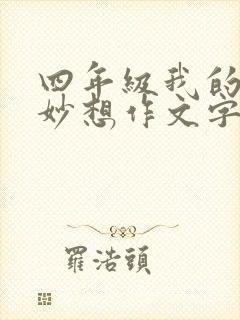 四年级我的
妙想作文字
羅浩頭